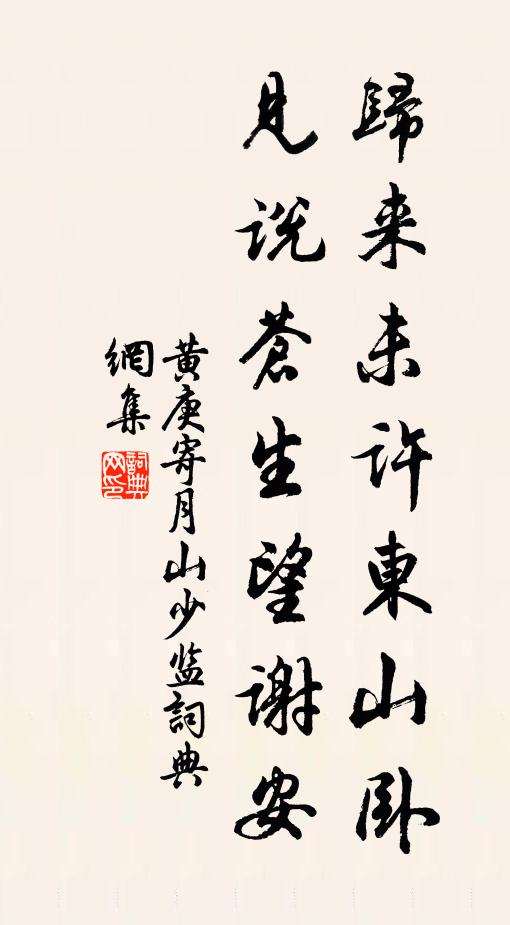 歸来未許東山卧
見説蒼生望謝安
黄庚寄月山少监詞典
網集
詞典
网印